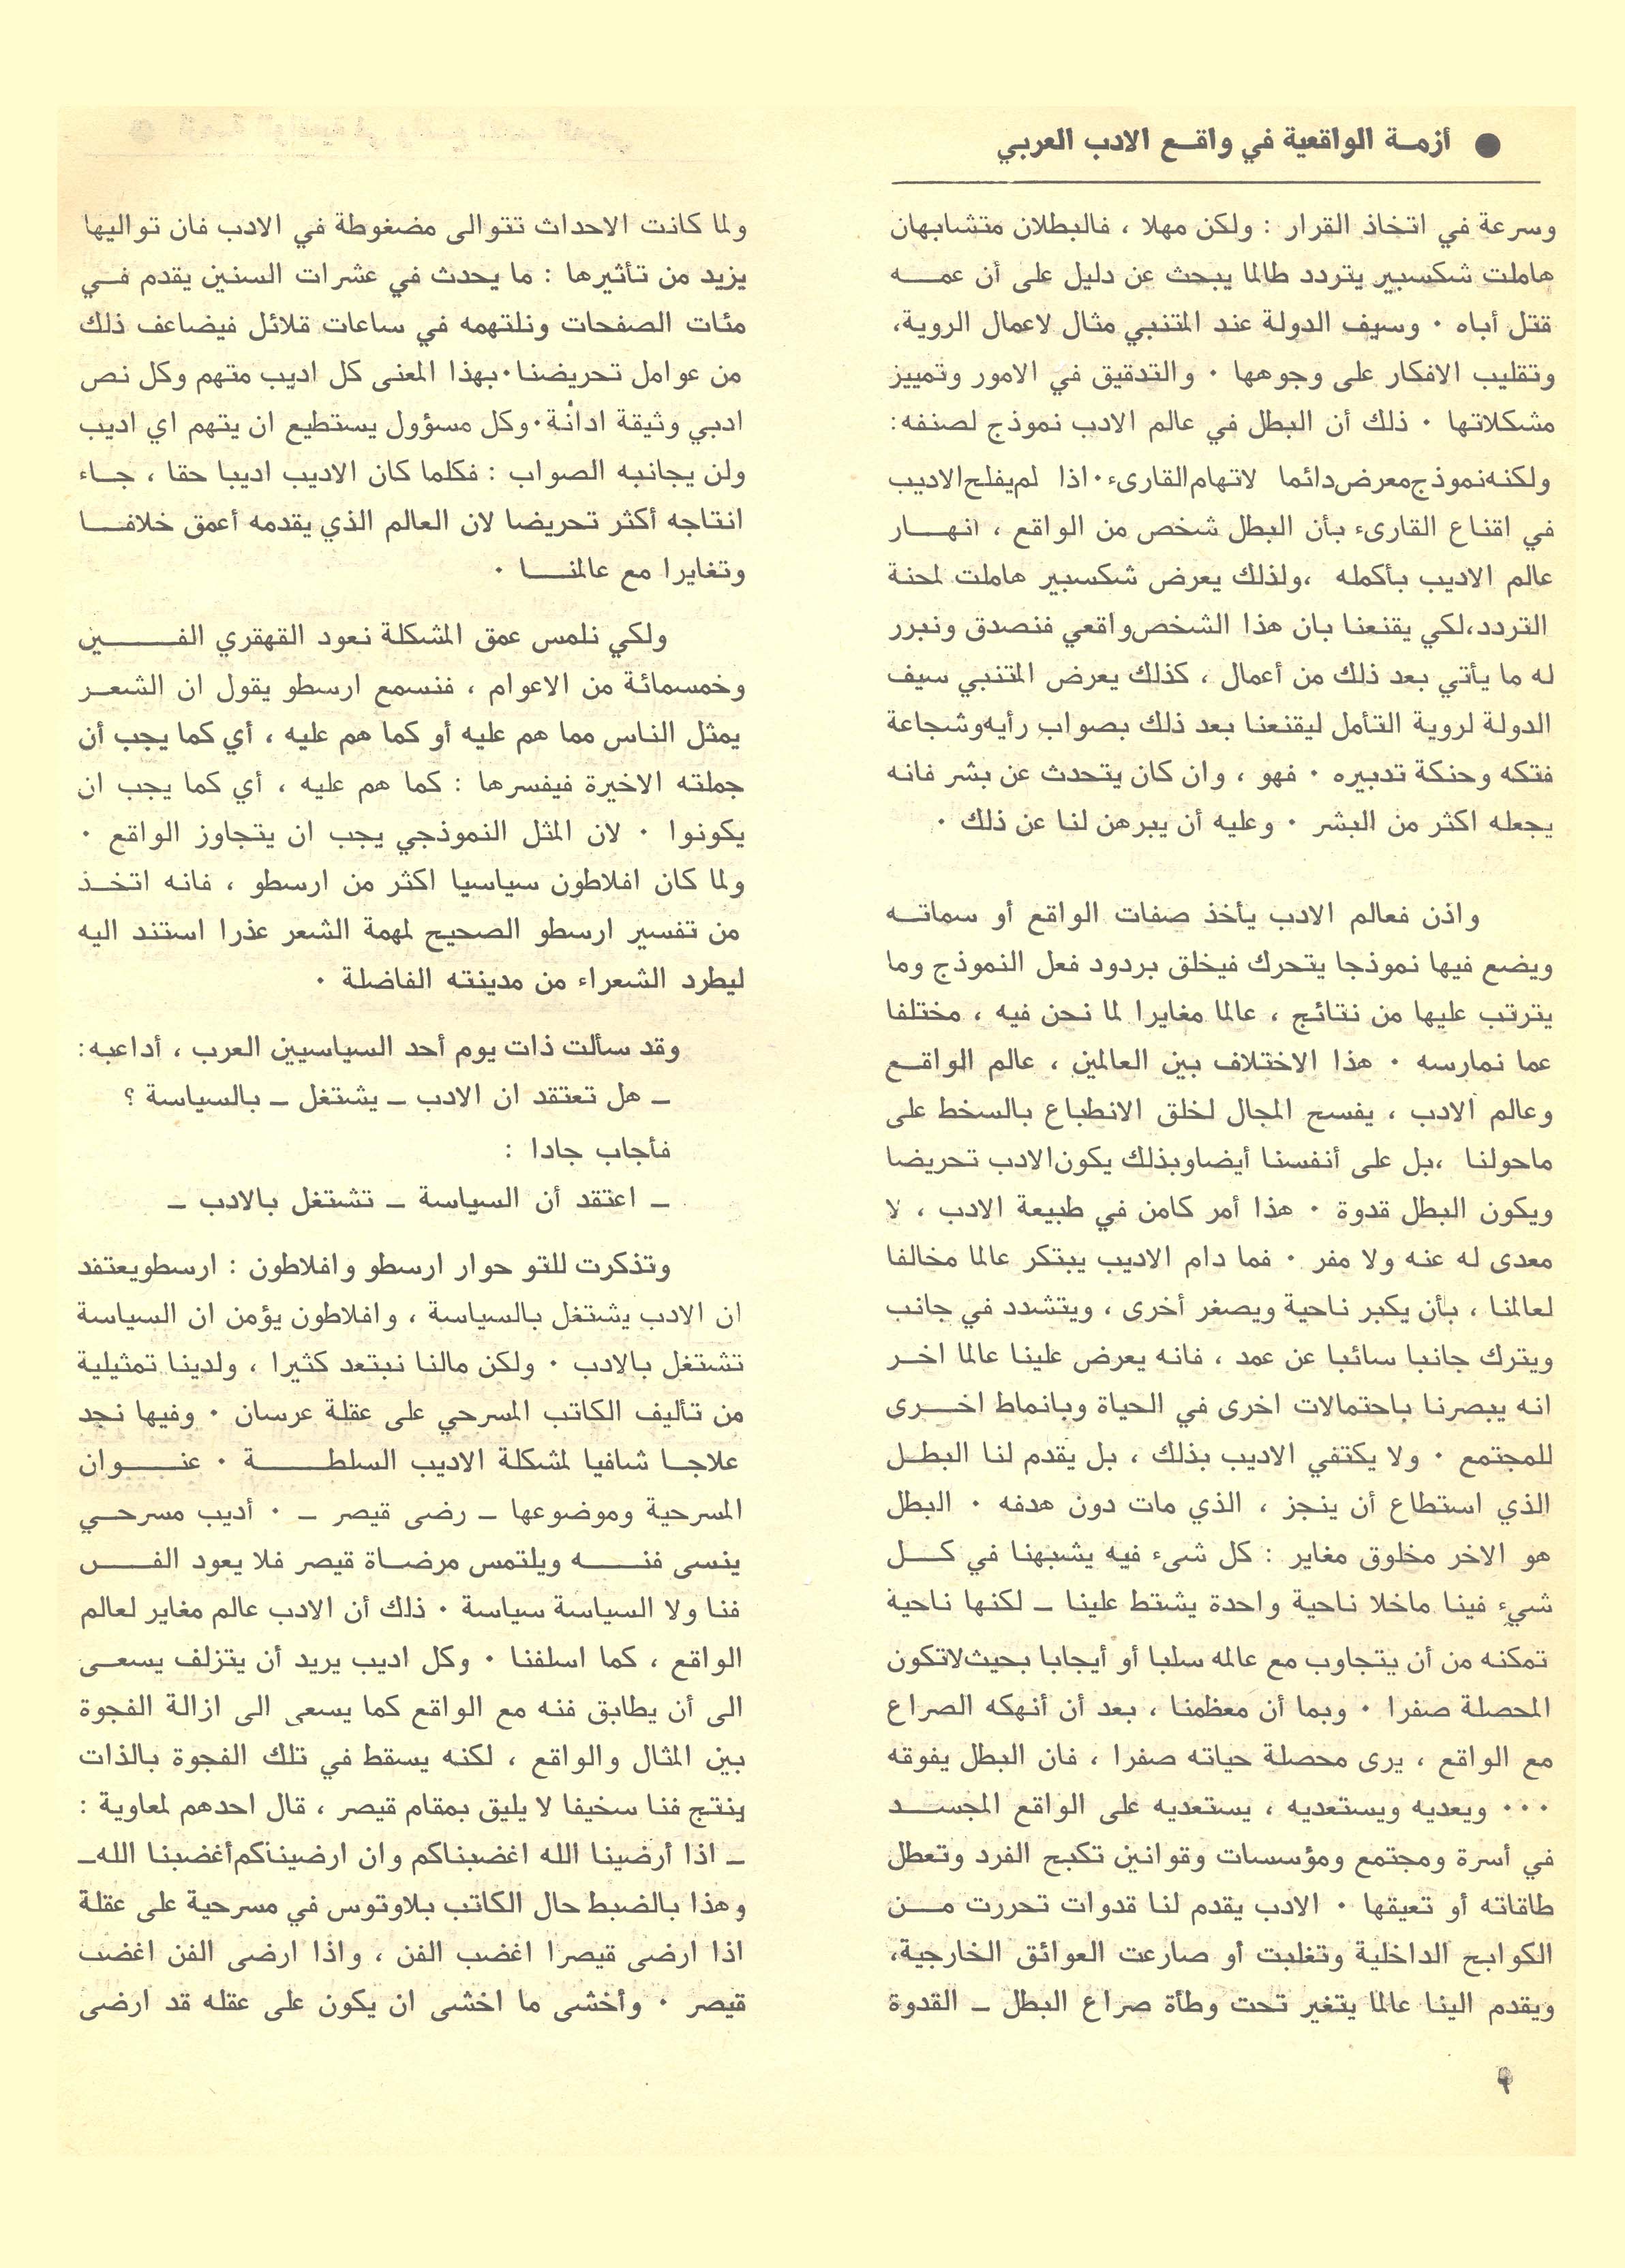 ● أزمـة الواقعية في واقـع الادب العربي
وسرعة في اتخاذ القرار : ولكن مهلا ، فالبطلان متشابهان
هاملت شكسبير يتردد طالما يبحث عن دليل على أن عمـه
قتل أباه ٠ وسيف الدولة عند المتنبي مثال لاعمال الروية،
وتقليب الافكار على وجوهها ٠ والتدقيق في الامور وتمييز
مشكلاتها ٠ ذلك أن البطل في عالم الادب نموذج لصنفه:
ولكنه نموذج معرض دائما لاتهام القارىء٠ اذا لم يفلح الاديب
في اقناع القارىء بأن البطل شخص من الواقع ، انهـار
عالم الاديب بأكمله ،ولذلك يعرض شكسبير هاملت لمحنة
التردد،لكي يقنعنا بان هذا الشخص واقعي فنصدق ونبرر
له ما يأتي بعد ذلك من أعمال ، كذلك يعرض المتنبي سيف
الدولة لروية التأمل ليقنعنا بعد ذلك بصواب رأيه وشجاعة
فتكه وحنكة تدبيره ٠ فهو ، وان كان يتحدث عن بشر فانه
يجعله اكثر من البشر ٠ وعليه أن يبرهن لنا عن ذلك ٠
واذن فعالم الادب يأخذ صفات الواقع أو سماتـه
ويضع فيها نموذجا يتحرك فيخلق بردود فعل النموذج وما
يترتب عليها من نتائج ، عالما مغايرا لما نحن فيه ، مختلفا
عما نمارسه ٠ هذا الاختلاف بين العالمين ، عالم الواقـع
وعالم الادب ، يفسح المجال لخلق الانطباع بالسخط على
ماحولنا ،بل على أنفسنا أيضاوبذلك يكون الادب تحريضا
ويكون البطل قدوة ٠ هذا أمر كامن في طبيعة الادب ، لا
معدى له عنه ولا مفر ٠ فما دام الاديب يبتكر عالما مخالفا
لعالمنا ، بأن يكبر ناحية ويصغر أخرى ، ويتشدد في جانب
ويترك جانبا سائبا عن عمد ، فانه يعرض علينا عالما اخـر
انه يبصرنا باحتمالات اخرى في الحياة وبانماط اخـرى
للمجتمع ٠ ولا يكتفي الاديب بذلك ، بل يقدم لنا البطـل
الذي استطاع أن ينجز ، الذي مات دون هدفه ٠ البطل
هو الاخر مخلوق مغاير : كل شىء فيه يشبهنا في كـل
شيء فينا ماخلا ناحية واحدة يشتط علينا ـ لكنها ناحية
تمكنه من أن يتجاوب مع عالمه سلبا أو أيجابا بحيث لاتكون
المحصلة صفرا ٠ وبما أن معظمنا ، بعد أن أنهكه الصراع
مع الواقع ، يرى محصلة حياته صفرا ، فان البطل يفوقه
٠٠٠ ويعديه ويستعديه ، يستعديه على الواقع المجسـد
في أسرة ومجتمع ومؤسسات وقوانين تكبح الفرد وتعطل
طاقاته أو تعيقها ٠ الادب يقدم لنا قدوات تحررت مـن
الكوابح الداخلية وتغلبت أو صارعت العوائق الخارجية،
ويقدم الينا عالما يتغير تحت وطأة صراع البطل ـ القدوة
ولما كانت الاحداث تتوالى مضغوطة في الادب فان تواليها
يزيد من تأثيرها : ما يحدث في عشرات السنين يقدم فـي
مئات الصفحات ونلتهمه في ساعات قلائل فيضاعف ذلك
من عوامل تحريضنا٠بهذا المعنى كل اديب متهم وكل نص
ادبي وثيقة ادانة٠وكل مسؤول يستطيع ان يتهم اي اديب
ولن يجانبه الصواب : فكلما كان الاديب اديبا حقا ، جـاء
انتاجه أكثر تحريضا لان العالم الذي يقدمه أعمق خلافـا
وتغايرا مع عالمنـا ٠
ولكي نلمس عمق المشكلة نعود القهقري الفـين
وخمسمائة من الاعوام ، فنسمع ارسطو يقول ان الشعـر
يمثل الناس مما هم عليه أو كما هم عليه ، أي كما يجب أن
جملته الاخيرة فيفسرها : كما هم عليه ، أي كما يجب ان
يكونوا ٠ لان المثل النموذجي يجب ان يتجاوز الواقع ٠
ولما كان افلاطون سياسيا اكثر من ارسطو ، فانه اتخـذ
من تفسير ارسطو الصحيح لمهمة الشعر عذرا استند اليه
ليطرد الشعراء من مدينته الفاضلة ٠
وقد سألت ذات يوم أحد السياسيين العرب ، أداعبه:
ـ هل تعتقد ان الادب ـ يشتغل ـ بالسياسة ؟
فأجاب جادا :
ـ اعتقد أن السياسة ـ تشتغل بالادب ـ
وتذكرت للتو حوار ارسطو وافلاطون : ارسطويعتقد
ان الادب يشتغل بالسياسة ، وافلاطون يؤمن ان السياسة
تشتغل بالادب ٠ ولكن مالنا نبتعد كثيرا ، ولدينا تمثيلية
من تأليف الكاتب المسرحي على عقلة عرسان ٠ وفيها نجد
علاجـا شافيا لمشكلة الاديب السلطـة ٠ عنـوان
المسرحية وموضوعها ـ رضى قيصر ـ ٠ أديب مسرحـي
ينسى فنـه ويلتمس مرضـاة قيصر فلا يعود الفـن
فنا ولا السياسة سياسة ٠ ذلك أن الادب عالم مغاير لعالم
الواقع ، كما اسلفنا ٠ وكل اديب يريد أن يتزلف يسعـى
الى أن يطابق فنه مع الواقع كما يسعى الى ازالة الفجوة
بين المثال والواقع ، لكنه يسقط في تلك الفجوة بالذات
ينتج فنا سخيفا لا يليق بمقام قيصر ، قال احدهم لمعاوية :
ـ اذا أرضينا الله اغضبناكم وان ارضيناكم أغضبنا الله ـ
وهذا بالضبط حال الكاتب بلاوتوس في مسرحية على عقلة
اذا ارضى قيصرا اغضب الفن ، واذا ارضى الفن اغضب
قيصر ٠ وأخشى ما اخشى ان يكون على عقله قد ارضى